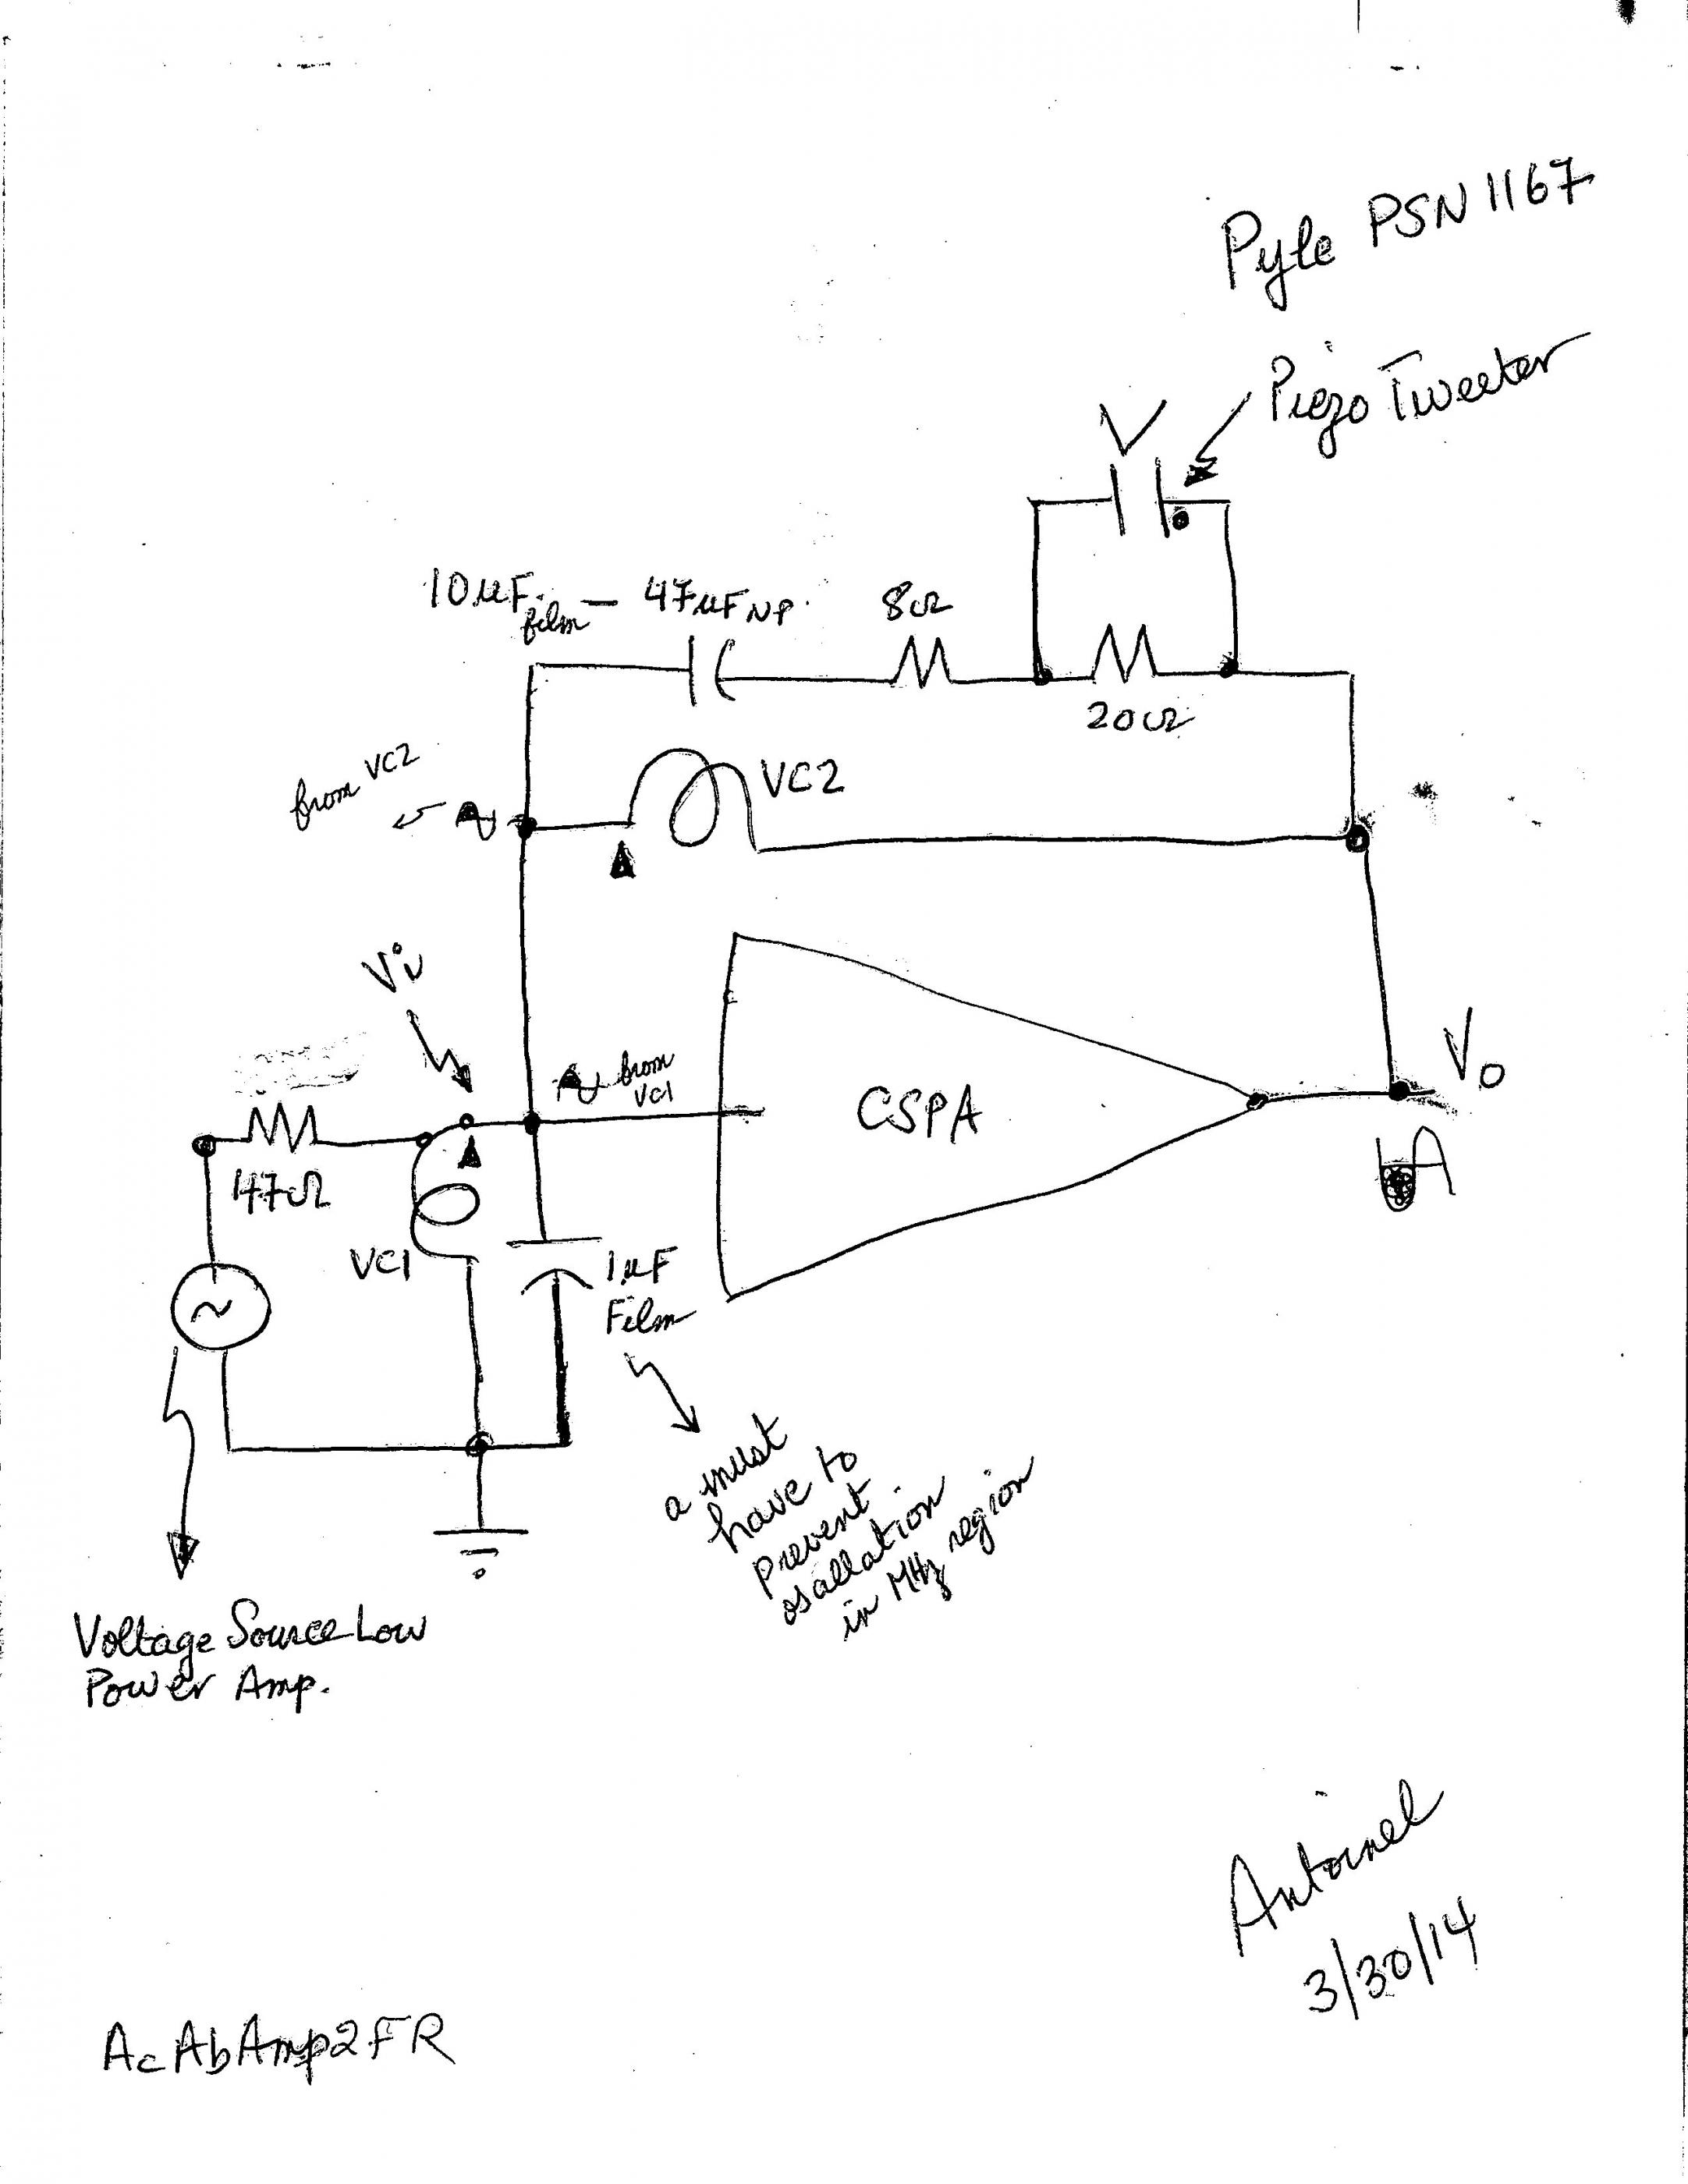 Pyle PSN 1167
Piezo Tweeter
V
10µF film – 47µF NP.
8Ω
20Ω
from VC2
VC2
Vi
from
VC1
CSPA
Vo
47Ω
VC1
1µF
Film
a must
have to
prevent
osallation
in MHz region
~
Voltage Source Low
Power Amp.
Antoinel
3/30/14
AcAbAmp2FR